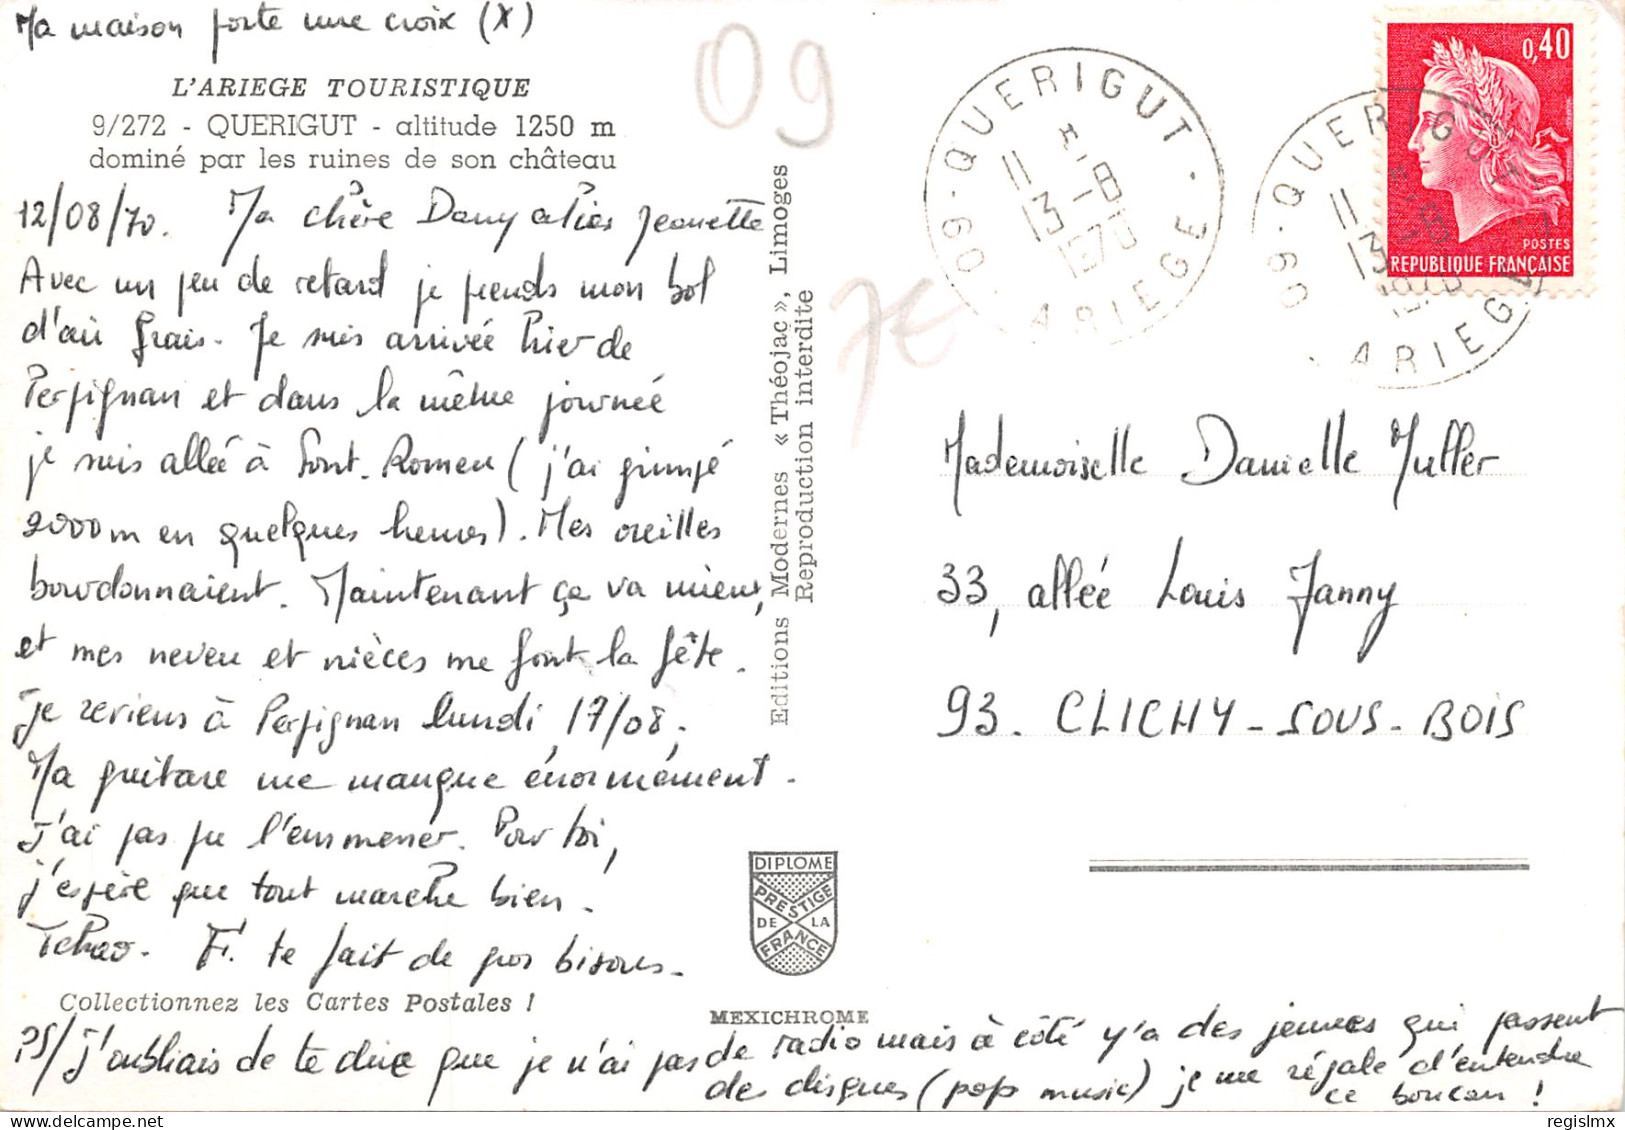 Ma maison porte une croix (X)
L'ARIEGE TOURISTIQUE
9/272 - QUERIGUT - altitude 1250 m
dominé par les ruines de son château
12/08/70. Ma chère Dany alias Jeannette
Avec un peu de retard je prends mon bol
d'air frais. Je suis arrivée hier de
Perpignan et dans la même journée
je suis allée à Font-Romeu (j'ai grimpé
2000 m en quelques heures). Mes oreilles
bourdonnaient. Maintenant ça va mieux,
et mes neveu et nièces me font la fête.
Je reviens à Perpignan lundi 17/08.
Ma guitare me manque énormément.
J'ai pas pu l'emmener. Pour toi,
j'espère que tout marche bien.
Tchao. F. te fait de gros bisous.
Collectionnez les Cartes Postales !
PS/ J'oubliais de te dire que je n'ai pas de radio mais à côté y'a des jeunes qui passent
des disques (pop music) je me régale d'entendre
ce boucan !
Editions Modernes « Théojac », Limoges
Reproduction interdite
DIPLOME
PRESTIGE
DE LA
FRANCE
MEXICHROME
09
7€
09 - QUERIGUT - ARIEGE
11 H
13 - 8
1970
09 - QUERIGUT - ARIEGE
11 H
13 - 8
1970
0,40
POSTES
REPUBLIQUE FRANÇAISE
Mademoiselle Danielle Muller
33, allée Louis Janny
93. CLICHY-SOUS-BOIS
regislmx